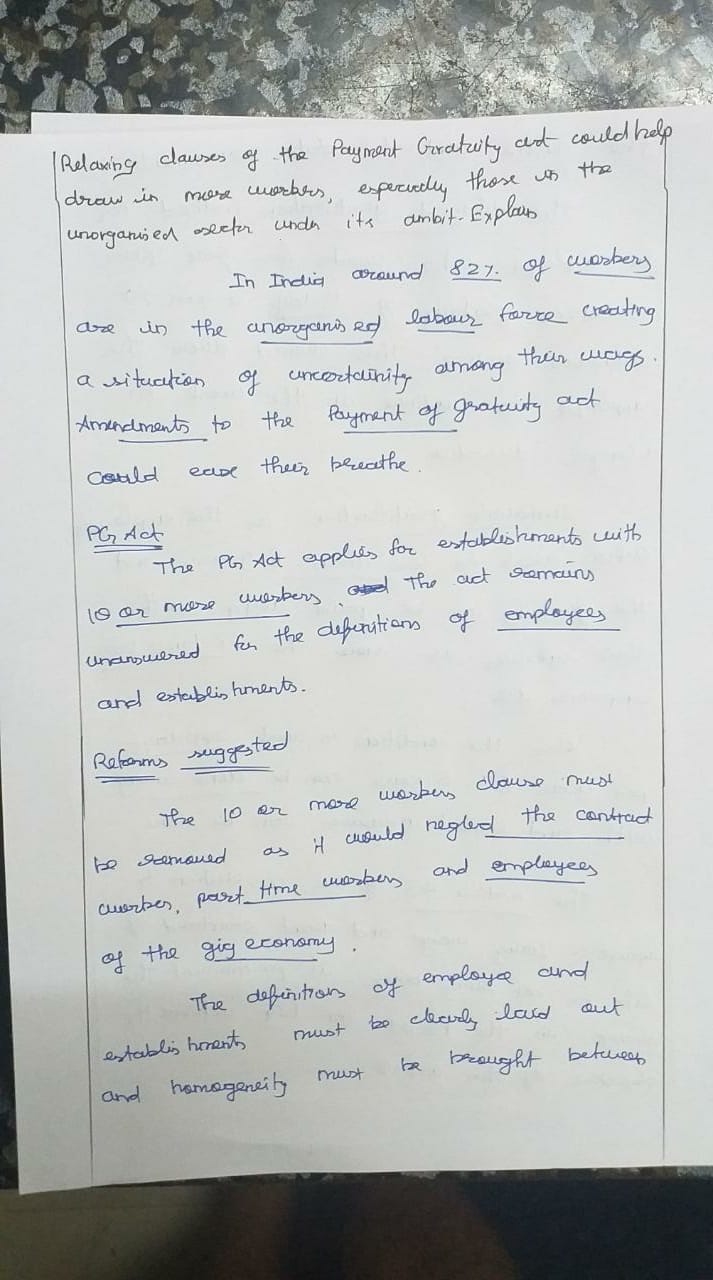 Relaxing clauses of the Payment Gratuity act could help
draw in more workers, especially those in the
unorganised sector under its ambit. Explain
In India around 82% of workers
are in the unorganised labour force creating
a situation of uncertainity among their wages.
Amendments to the Payment of gratuity act
could ease their breathe.
PG Act
The PG Act applies for establishments with
10 or more workers. The act remains
unanswered for the definitions of employees
and establishments.
Reforms suggested
The 10 or more workers clause must
be removed as it would neglect the contract
worker, part time workers and employees
of the gig economy.
The definition of employee and
establishments must be clearly laid out
and homogeneity must be brought between